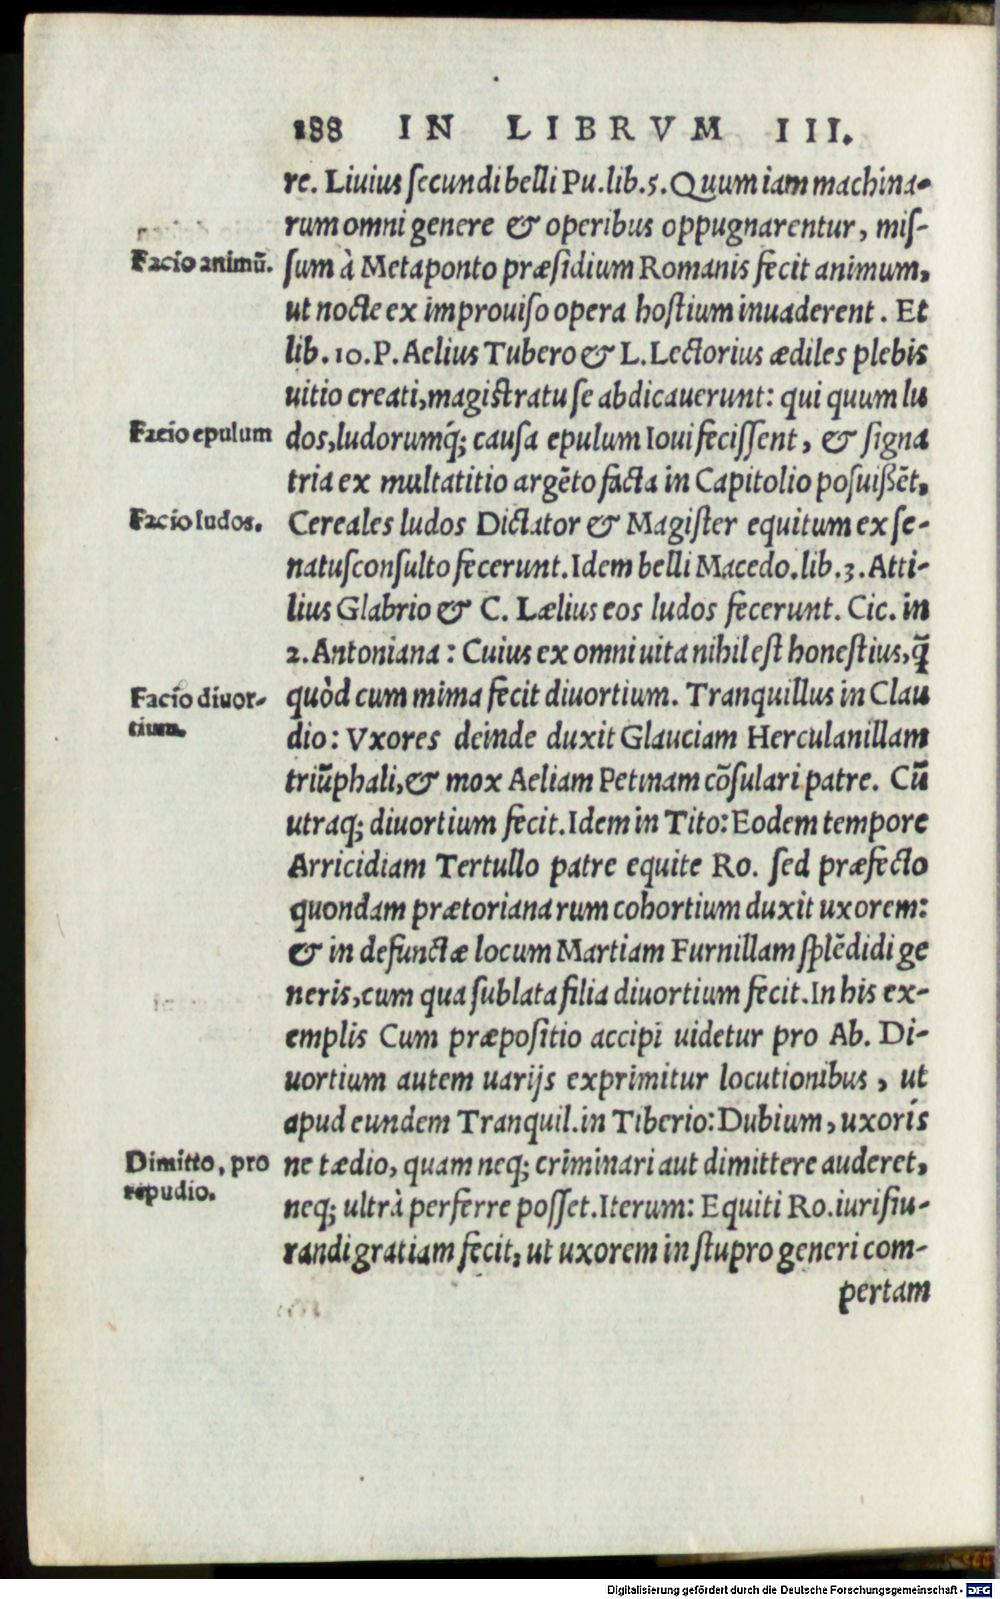 188 IN LIBRVM III.
re. Liuius ſecundi belli Pu. lib. 5. Quum iam machina-
rum omni genere & operibus oppugnarentur, miſ-
Facio animū.
ſum à Metaponto præſidium Romanis fecit animum,
ut nocte ex improuiſo opera hoſtium inuaderent. Et
lib. 10. P. Aelius Tubero & L. Lectorius ædiles plebis
uitio creati, magiſtratu ſe abdicauerunt: qui quum lu
Facio epulum
dos, ludorumq́; cauſa epulum Ioui feciſſent, & ſigna
tria ex multatitio argēto facta in Capitolio poſuißēt,
Facio ludos.
Cereales ludos Dictator & Magiſter equitum ex ſe-
natuſconſulto fecerunt. Idem belli Macedo. lib. 3. Atti-
lius Glabrio & C. Lælius eos ludos fecerunt. Cic. in
2. Antoniana: Cuius ex omni uita nihil eſt honeſtius, q̃
Facio diuor-
tium.
quòd cum mima fecit diuortium. Tranquillus in Clau
dio: Vxores deinde duxit Glauciam Herculanillam
triūphali, & mox Aeliam Petinam cōſulari patre. Cū
utraq; diuortium fecit. Idem in Tito: Eodem tempore
Arricidiam Tertullo patre equite Ro. ſed præfecto
quondam prætorianarum cohortium duxit uxorem:
& in defunctæ locum Martiam Furnillam ſplēdidi ge
neris, cum qua ſublata filia diuortium fecit. In his ex-
emplis Cum præpoſitio accipi uidetur pro Ab. Di-
uortium autem uarijs exprimitur locutionibus, ut
apud eundem Tranquil. in Tiberio: Dubium, uxorís
Dimitto, pro
repudio.
ne tædio, quam neq; criminari aut dimittere auderet,
neq; ultrà perferre poſſet. Iterum: Equiti Ro. iuriſiu-
randi gratiam fecit, ut uxorem in ſtupro generi com-
pertam
Digitalisierung gefördert durch die Deutsche Forschungsgemeinschaft - DFG